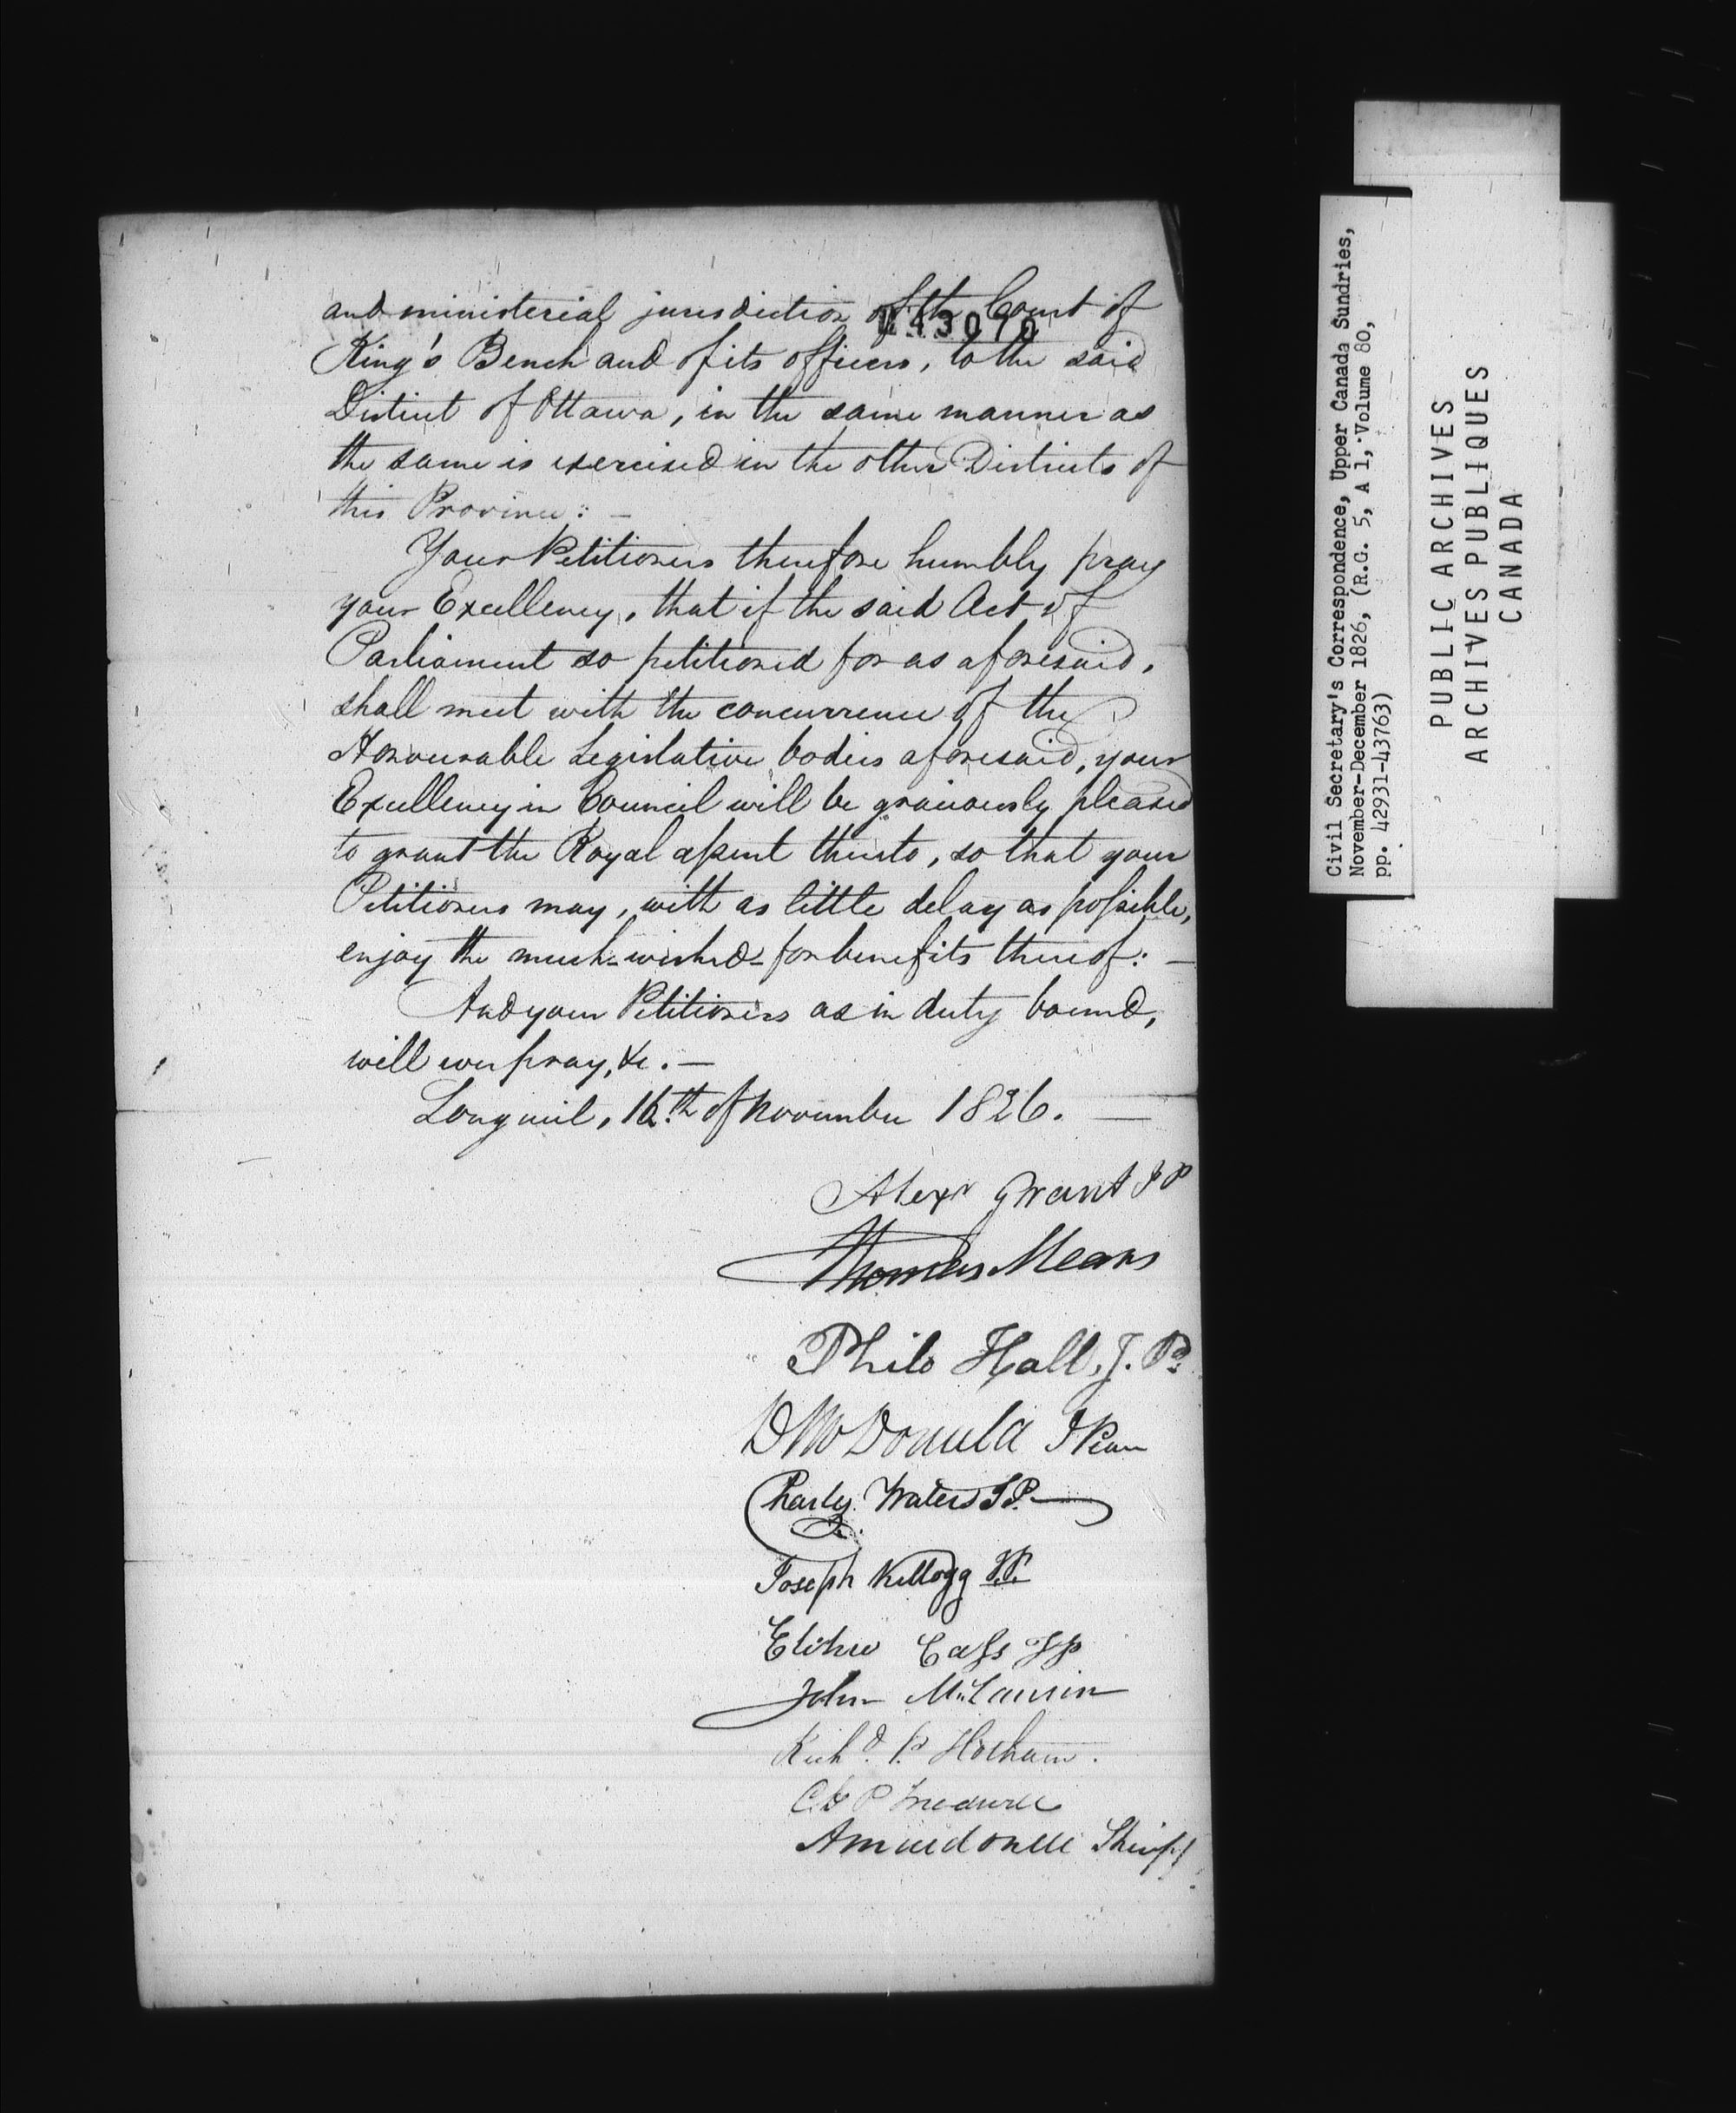 and ministerial jurisdiction of the Court of
43070
King's Bench and of its officers, to the said
District of Ottawa, in the same manner as
the same is exercised in the other Districts of
this Province: —
Your Petitioners therefore humbly pray
your Excellency, that if the said Act of
Parliament so petitioned for as aforesaid,
shall meet with the concurrence of the
Honourable Legislative bodies aforesaid, your
Excellency in Council will be graciously pleased
to grant the Royal assent thereto, so that your
Petitioners may, with as little delay as possible,
enjoy the much-wished-for benefits thereof: —
And your Petitioners as in duty bound,
will ever pray, &c. —
Longueil, 16th of November 1826. —
Alexr Grant JP
Thomas Mears
Philo Hall, J. P.
D McDonald
Charles Waters J.P.
Joseph Kellogg J.P.
Elihu Cass JP
John McLaurin
Richd. P. Hotham.
C A P Treadwell
A McDonell Sheriff
Civil Secretary's Correspondence, Upper Canada Sundries,
November-December 1826, (R.G. 5, A 1, Volume 80,
pp. 42931-43763)
PUBLIC ARCHIVES
ARCHIVES PUBLIQUES
CANADA